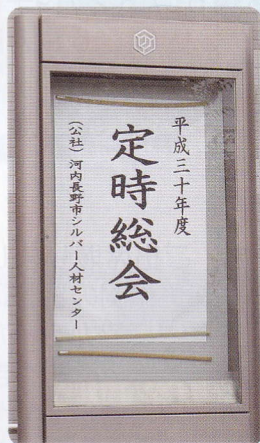 平成三十年度
定時総会
（公社）河内長野市シルバー人材センター